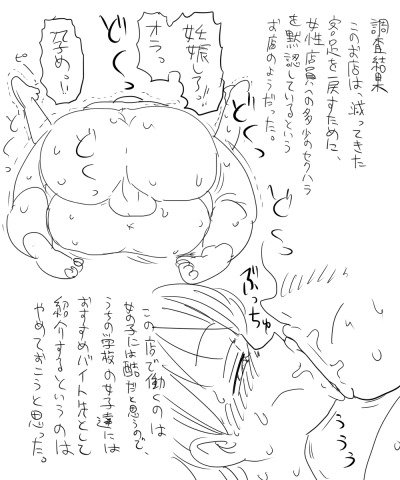 調査結果
このお店は、減ってきた
客足を戻すために、
女性店員への多少のセクハラ
を黙認しているという
お店のようだった。
妊娠しろ!!
オラっ
孕めっ!!
ど〜っ
ど〜
ど〜っ
ぶっちゅ
ううぅ
この店で働くのは
女の子には酷だと思うので、
うちの学校の女子達には
おすすめバイト先として
紹介するというのは
やめておこうと思った。